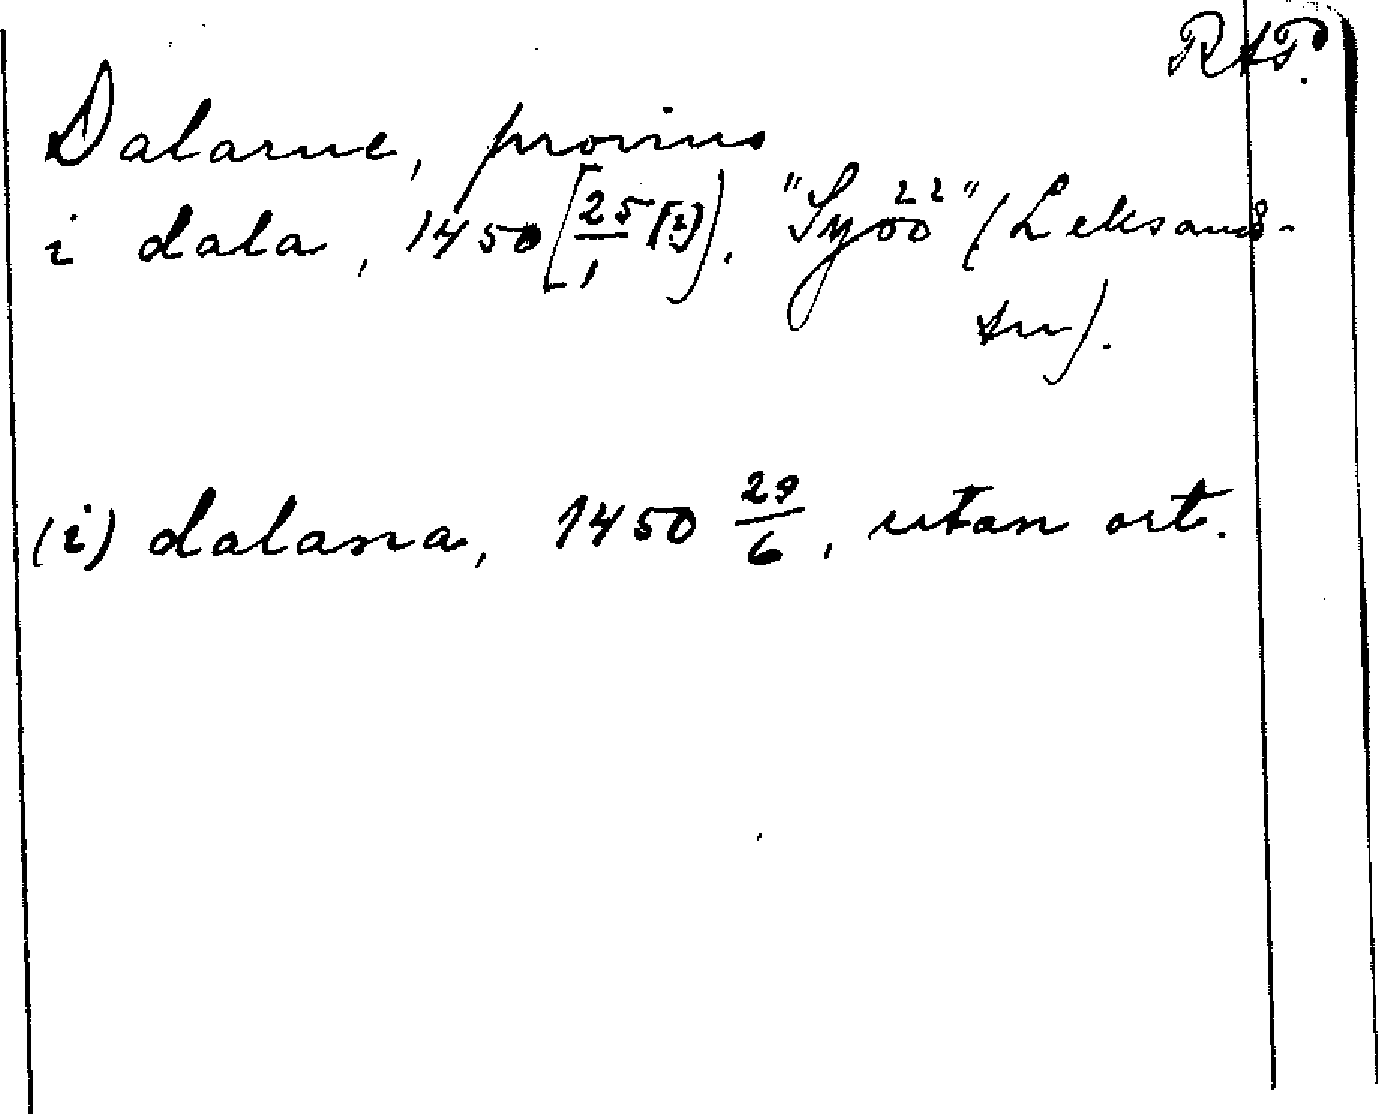 RAP.
Dalarne, provins
i dala, 1450 [25/1 (?)], "Syöö" (Leksands-
sn).
(i) dalana, 1450 29/6, utan ort.